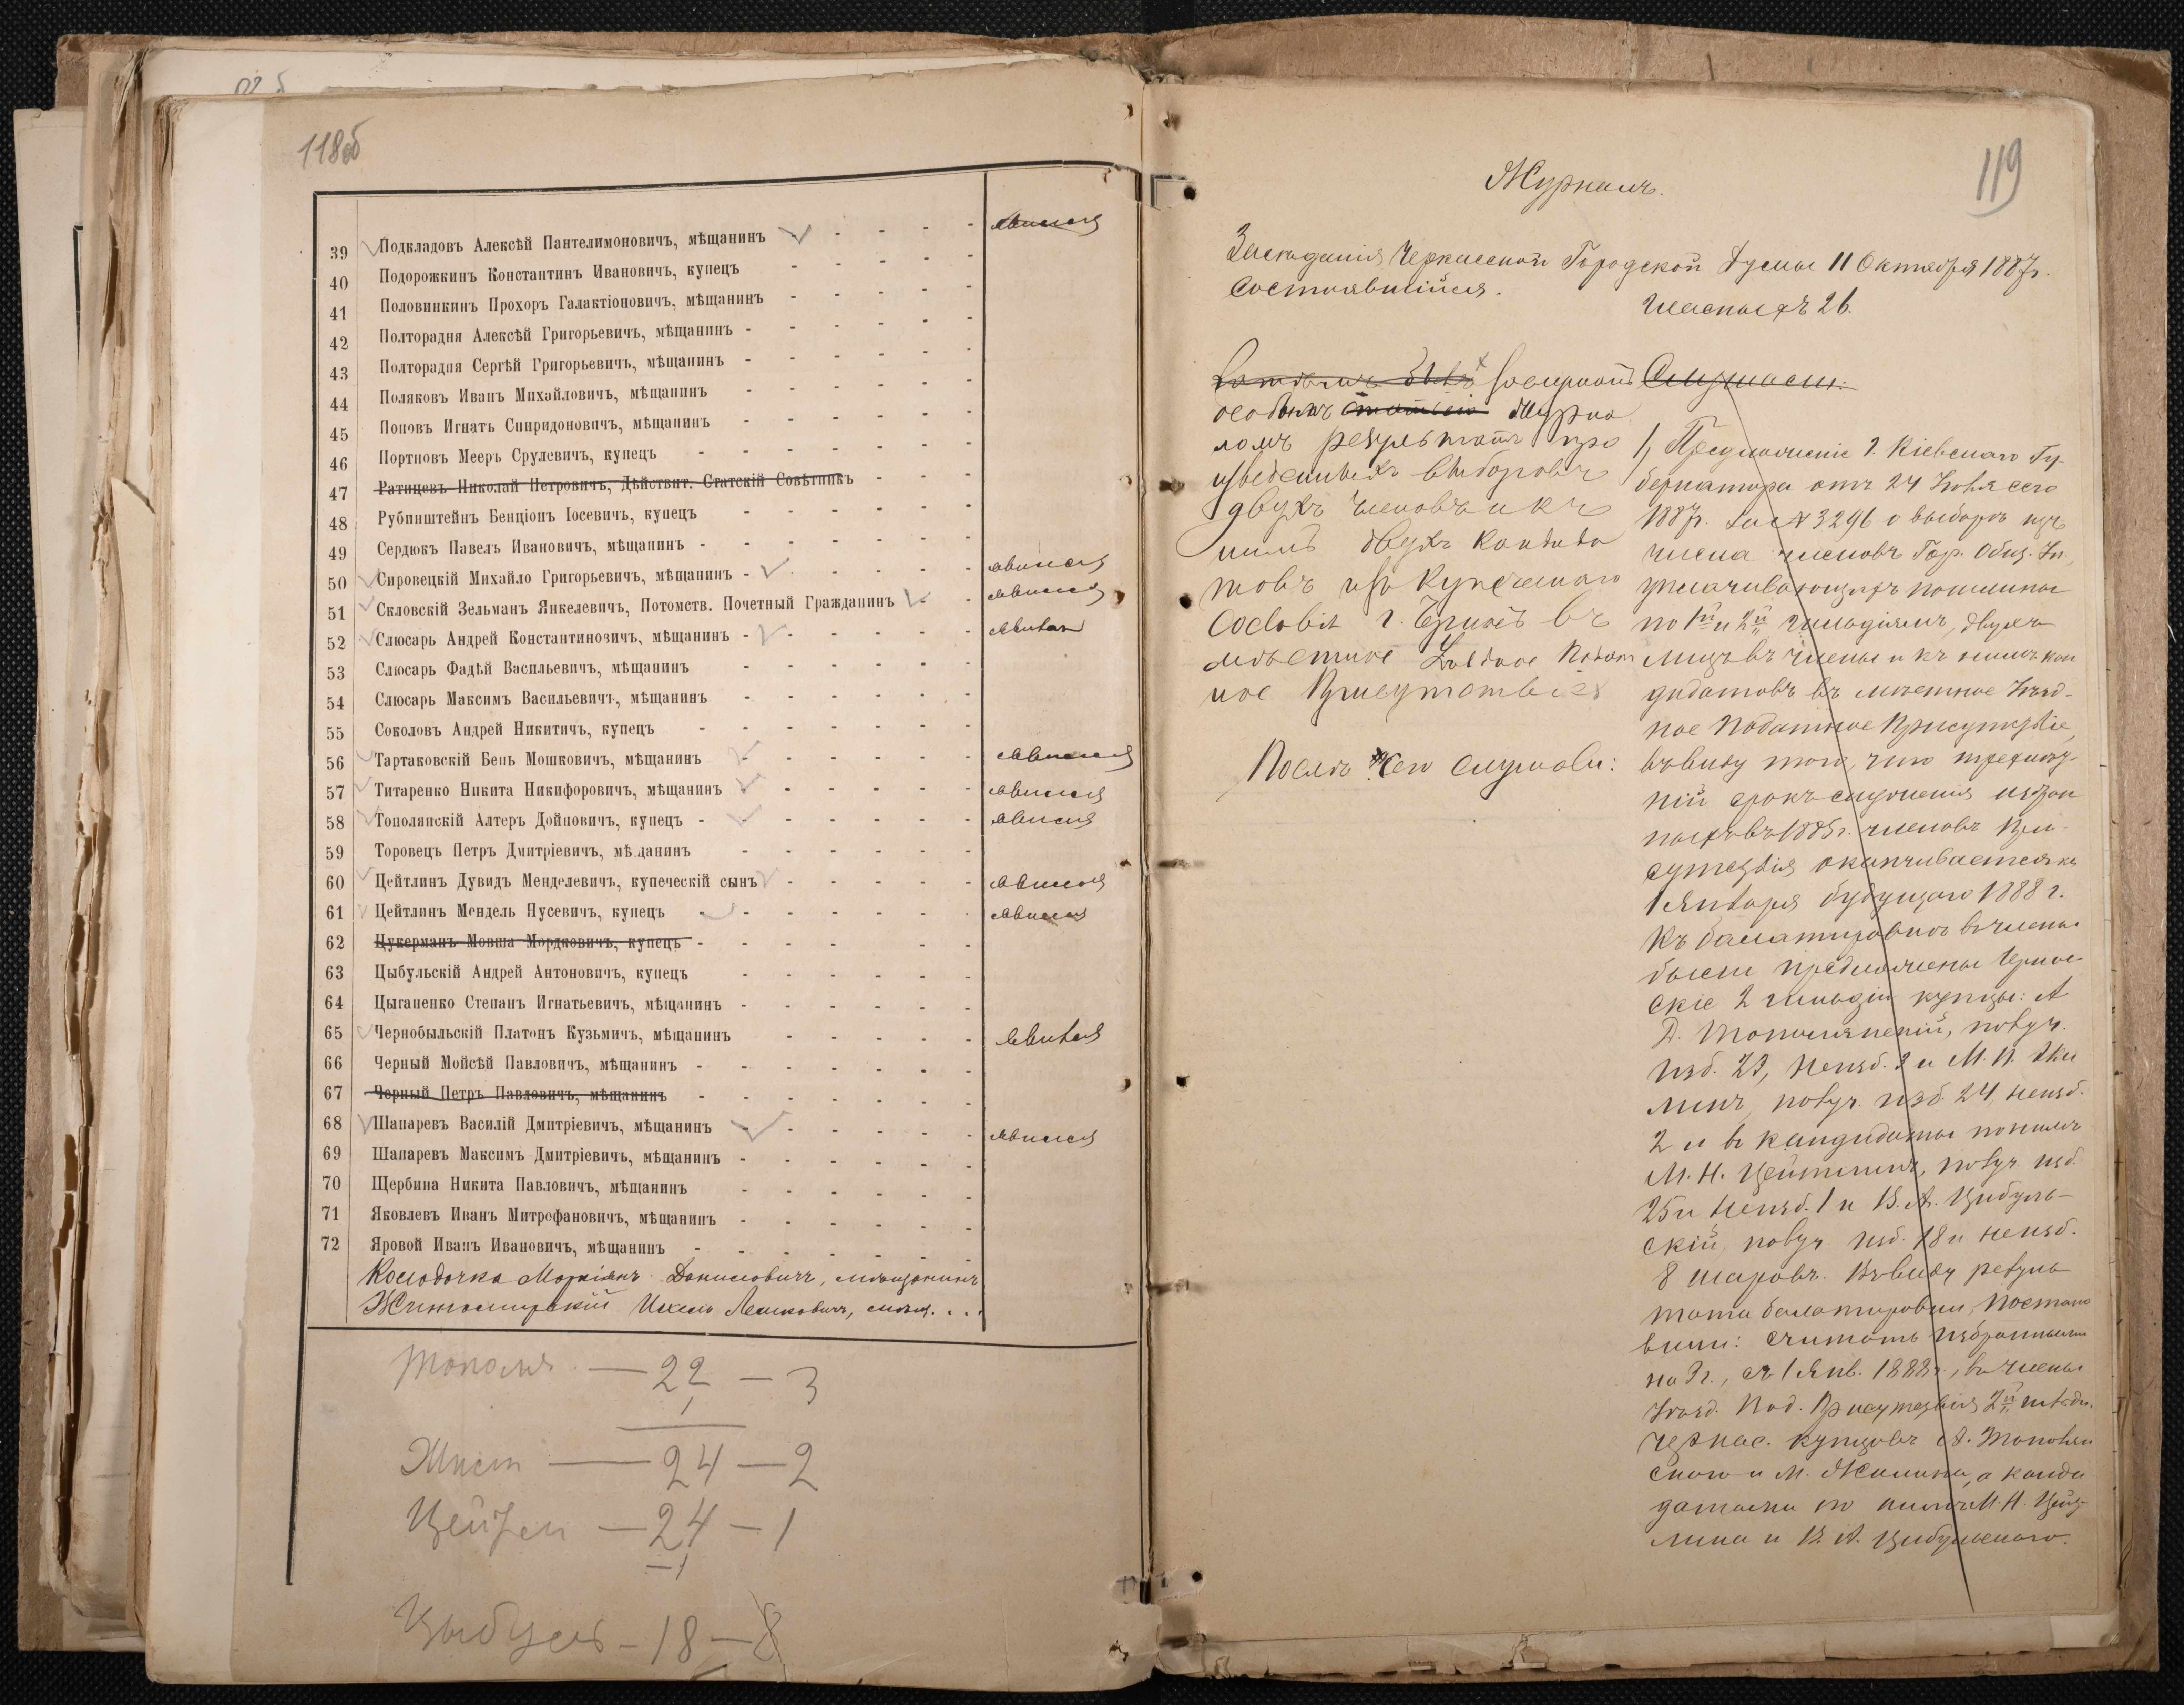 118об
39 Подкладовъ Алексѣй Пантелимоновичъ, мѣщанинъ - - - - явился
40 Подорожкинъ Константинъ Ивановичъ, купецъ - - - - -
41 Половинкинъ Прохоръ Галактіоновичъ, мѣщанинъ - - - - -
42 Полторадня Алексѣй Григорьевичъ, мѣщанинъ - - - - - -
43 Полторадня Сергѣй Григорьевичъ, мѣщанинъ - - - - - -
44 Поляковъ Иванъ Михайловичъ, мѣщанинъ - - - - - -
45 Поповъ Игнатъ Спиридоновичъ, мѣщанинъ - - - - - -
46 Портновъ Мееръ Срулевичъ, купецъ - - - - - -
47 Ратицевъ Николай Петровичъ, Дѣйствит. Статскій Совѣтникъ - - -
48 Рубинштейнъ Бенціонъ Іосевичъ, купецъ - - - - - -
49 Сердюкъ Павелъ Ивановичъ, мѣщанинъ - - - - - - -
50 Сировецкій Михайло Григорьевичъ, мѣщанинъ - - - - - явился
51 Скловскій Зельманъ Янкелевичъ, Потомств. Почетный Гражданинъ - - явился
52 Слюсарь Андрей Константиновичъ, мѣщанинъ - - - - - - явился
53 Слюсарь Фадѣй Васильевичъ, мѣщанинъ - - - - - -
54 Слюсарь Максимъ Васильевичъ, мѣщанинъ - - - - - -
55 Соколовъ Андрей Никитичъ, купецъ - - - - - - -
56 Тартаковскій Бень Мошковичъ, мѣщанинъ - - - - - - явился
57 Титаренко Никита Никифоровичъ, мѣщанинъ - - - - - - явился
58 Тополянскій Алтеръ Дойновичъ, купецъ - - - - - - - явился
59 Торовецъ Петръ Дмитріевичъ, мѣщанинъ - - - - - -
60 Цейтлинъ Дувидъ Менделевичъ, купеческій сынъ - - - - - явился
61 Цейтлинъ Мендель Нусевичъ, купецъ - - - - - - - явился
62 Цукерманъ Мовша Мордковичъ, купецъ - - - - - -
63 Цыбульскій Андрей Антоновичъ, купецъ - - - - - -
64 Цыганенко Степанъ Игнатьевичъ, мѣщанинъ - - - - - -
65 Чернобыльскій Платонъ Кузьмичъ, мѣщанинъ - - - - - явился
66 Черный Мойсѣй Павловичъ, мѣщанинъ - - - - - - -
67 Черный Петръ Павловичъ, мѣщанинъ - - - - - - -
68 Шапаревъ Василій Дмитріевичъ, мѣщанинъ - - - - - - явился
69 Шапаревъ Максимъ Дмитріевичъ, мѣщанинъ - - - - - -
70 Щербина Никита Павловичъ, мѣщанинъ - - - - - -
71 Яковлевъ Иванъ Митрофановичъ, мѣщанинъ - - - - - -
72 Яровой Иванъ Ивановичъ, мѣщанинъ - - - - - - -
Колодочка Маркіянъ Данисовичъ, мѣщанинъ
Житомирскій Лейковичъ, мѣщ. . . .
Тополя — 22 — 3
1
24 — 2
Цейтл — 24 — 1
— 1
Цыбуль — 18 — 8
119
Журналъ.
Засѣданія Черкасской Городской Думы 11 Октября 1887 г.
состоявшійся.
Гласныхъ 26.
особымъ журна
ломъ результатъ про
изведенныхъ выборовъ
двухъ членовъ и къ
нимъ двухъ кандида
товъ изъ купеческаго
сословія г. Черкасъ въ
мѣстное Уѣздное Подат
ное Присутствіе
Послѣ сего слушали:
Слушали:
1, Предложеніе г. Кіевскаго Гу-
бернатора отъ 24 Іюля сего
1887 г. за № 3296 о выборѣ изъ
числа членовъ Гор. Общ. Уп.,
уплачивающихъ пошлины
по 1й и 2й гильдіямъ, двухъ
лицъ въ члены и къ нимъ кан
дидатовъ въ мѣстное Уѣзд-
ное Податное Присутствіе,
въ виду того, что трехлѣт-
ній срокъ служенія избран
ныхъ въ 1885 г. членовъ При-
сутствія оканчивается къ
1 Января будущаго 1888 г.
Къ балатировкѣ въ члены
были предложены Черкас-
скіе 2 гильдіи купцы: А.
Д. Тополянскій, получ.
изб. 23, неизб. 3 и М. И. Жи
линъ, получ. изб. 24, неизб.
2 и въ кандидаты по нимъ
М. Н. Цейтлинъ, получ. изб.
25 и неизб. 1 и В. А. Цибуль-
скій, получ. изб. 18 и неизб.
8 шаровъ. Въ виду резуль
тата балатировки, постано
вили: считать избранными
на 3 г., съ 1 Янв. 1888 г., въ члены
Уѣзд. Под. Присутствія 2й гильд.
Черкас. купцовъ А. Тополян
скаго и М. Жилина, а канди
датами по нимъ М. Н. Цейт-
лина и В. А. Цибульскаго.